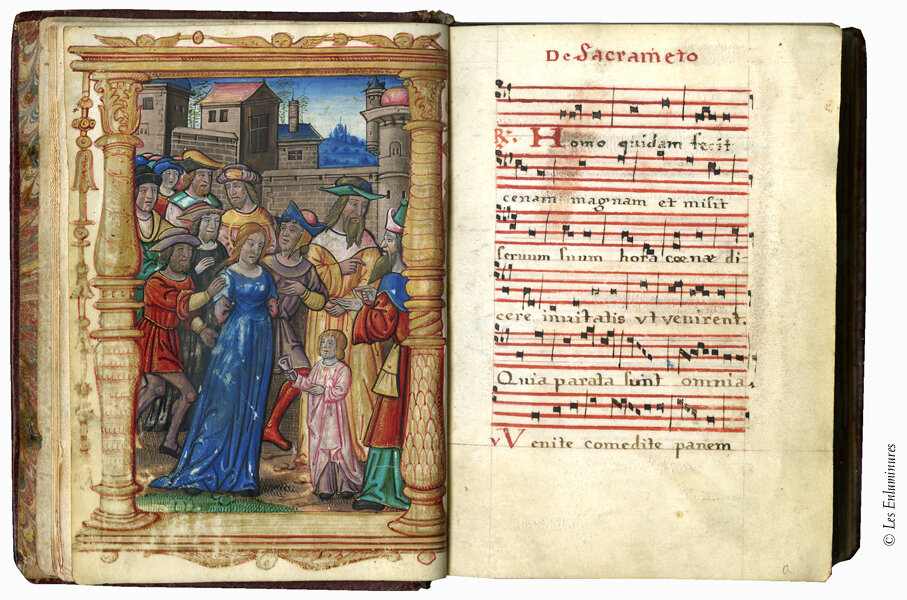 De Sacrameto
℟. Homo quidam fecit
cenam magnam et misit
seruum suum hora cœnæ di-
cere inuitatis vt venirent.
Quia parata sunt omnia
V Venite comedite panem
a
© Les Enluminures